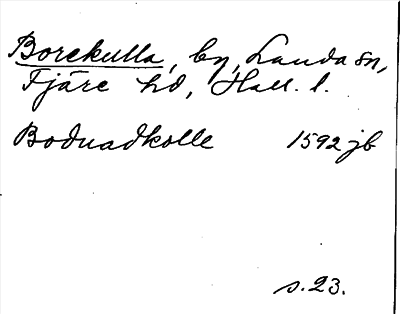 Borekulla, by, Landa sn,
Fjäre hd, Hall. l.
Bodnadkolle 1592 jb
s. 23.